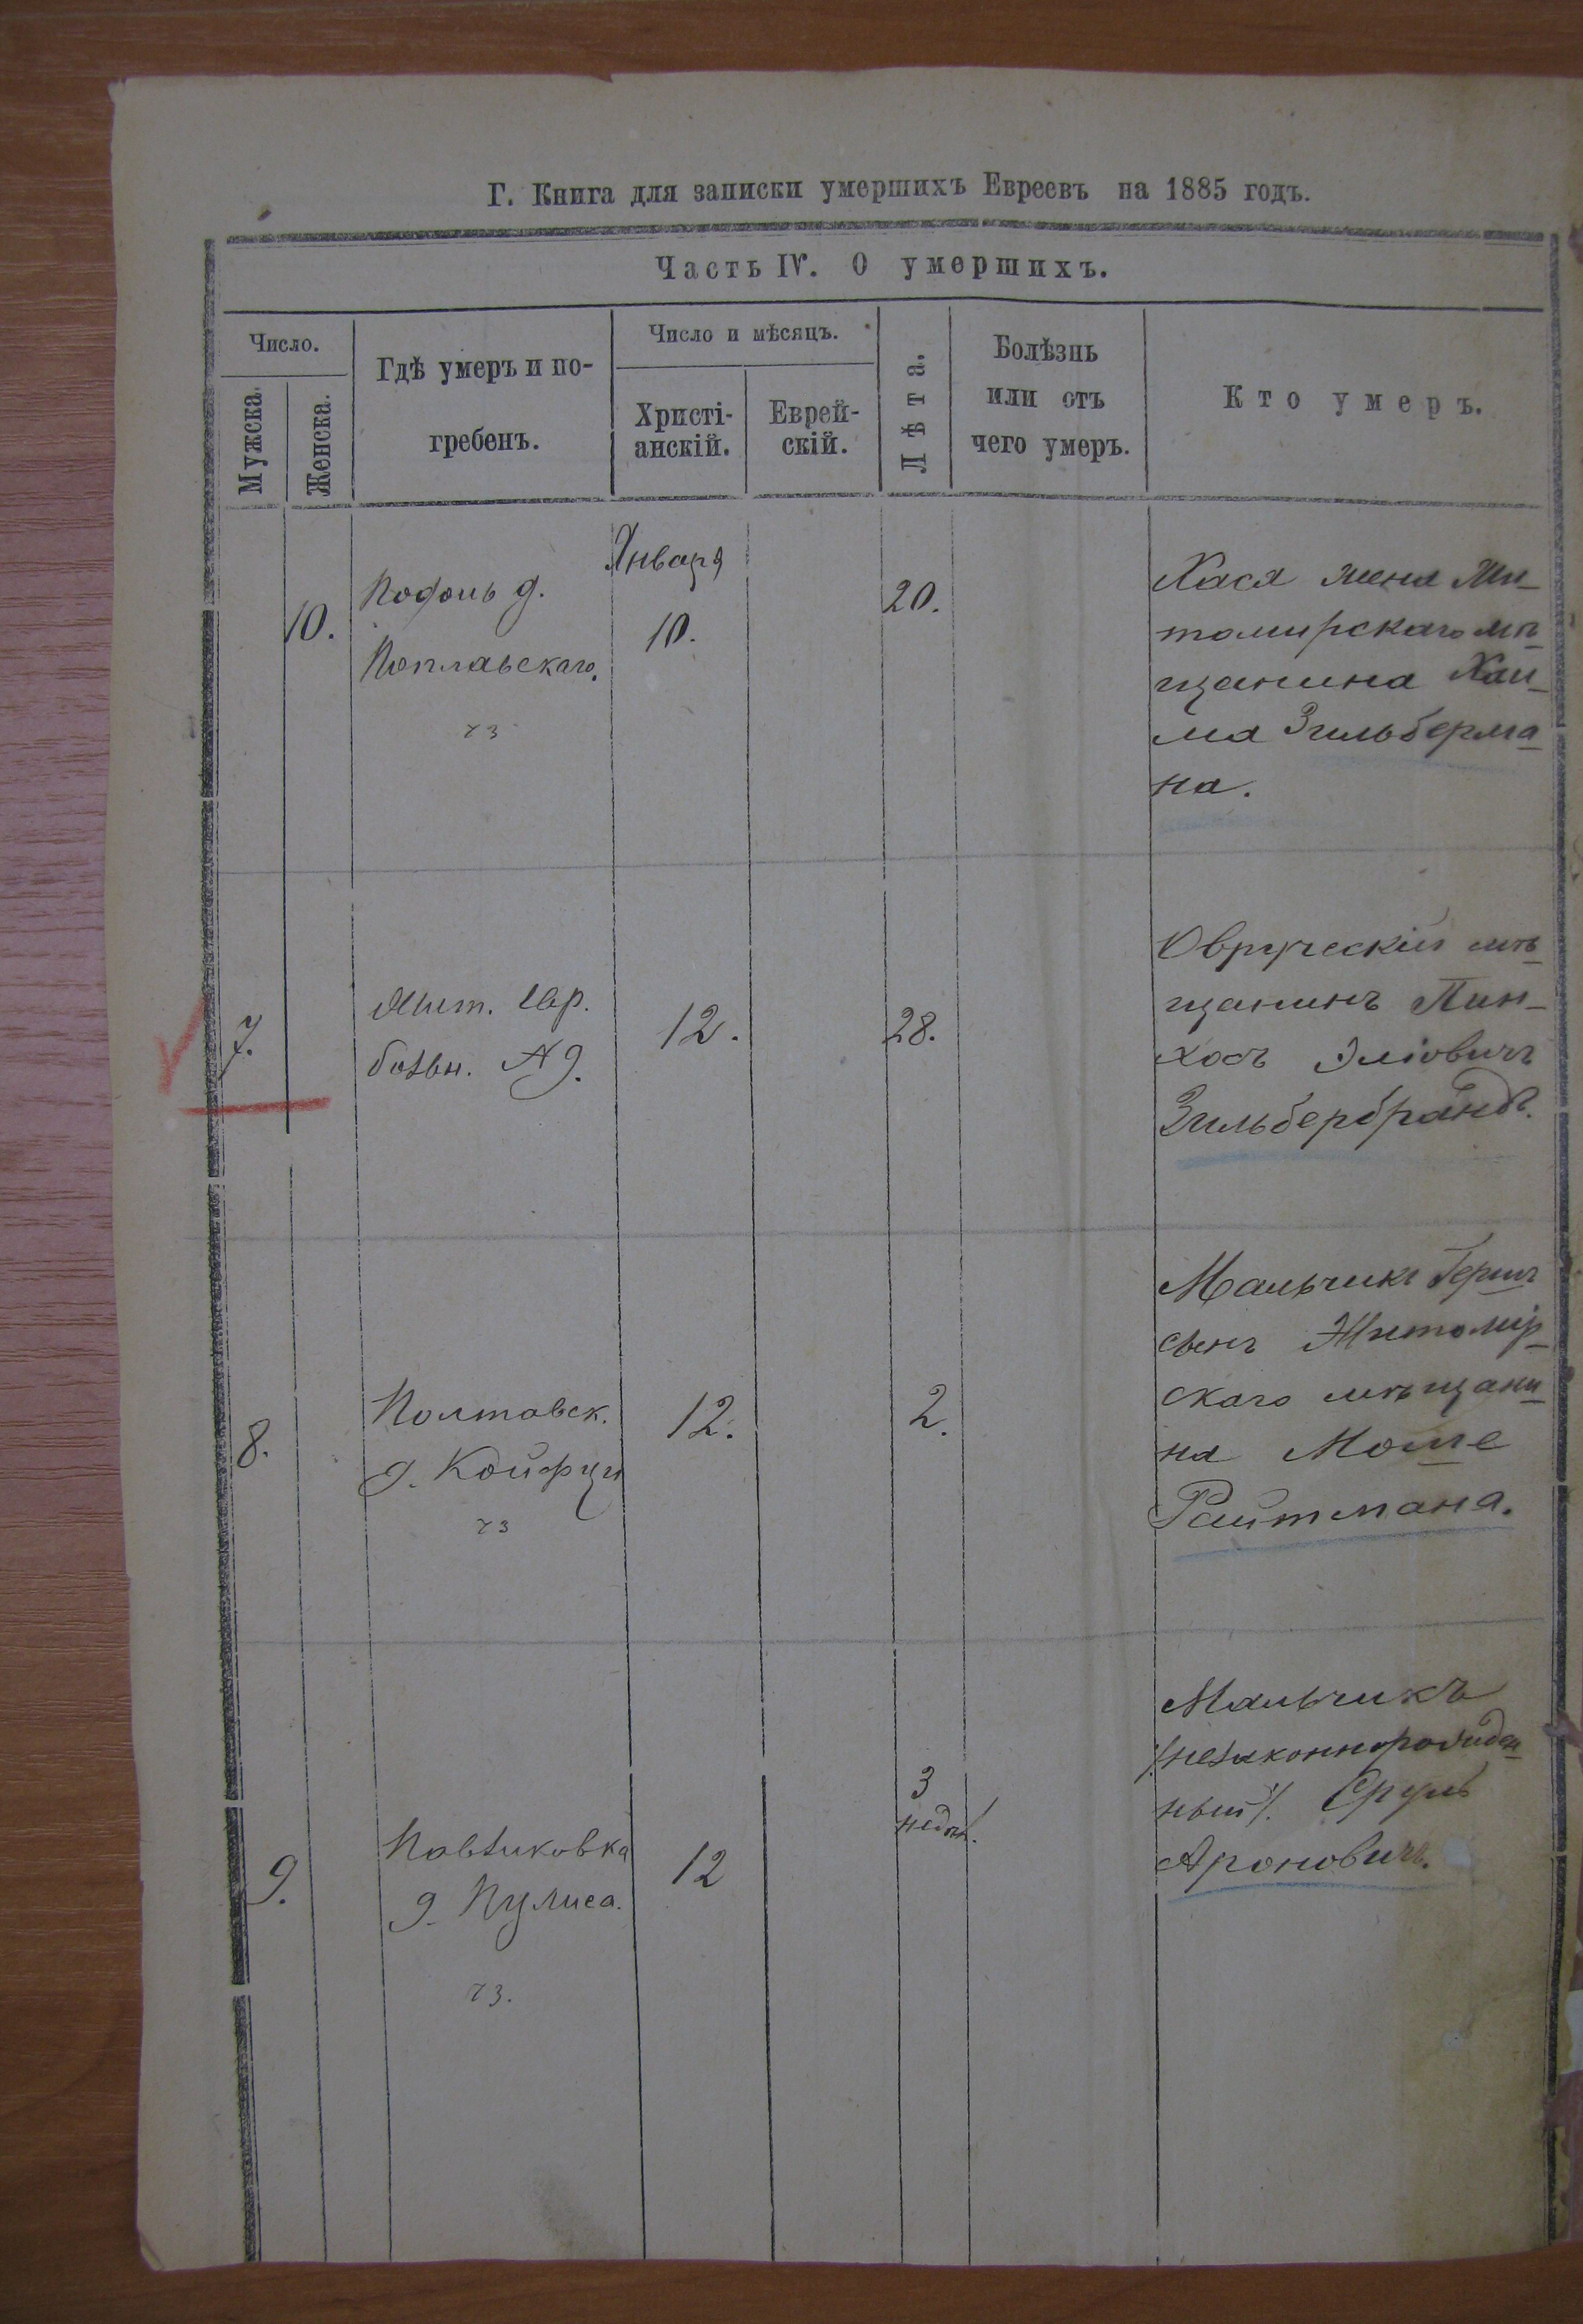 Г. Книга для записки умершихъ Евреевъ на 1885 годъ.
Часть IV. О умершихъ.
Число.
Мужска.
Женска.
Гдѣ умеръ и по-
гребенъ.
Число и мѣсяцъ.
Христі-
анскій.
Еврей-
скій.
Лѣта.
Болѣзнь
или отъ
чего умеръ.
Кто умеръ.
10.
Подоль д.
Поплавскаго.
Января
10.
20.
Хася жена Жи-
томирскаго мѣ-
щанина Хаи-
ма Зильберма-
на.
7.
Жит. Евр.
больн.
12.
28.
Овручскій мѣ-
щанинъ Пин-
хосъ Эліовичъ
Зильбербрандъ.
8.
Полтавск.
д. Койфци
12.
2.
Мальчикъ Гершъ
сынъ Житомір-
скаго мѣщани-
на Моше
Райтмана.
9.
Павликовка
д. Пулиса.
12
3
недѣл.
Мальчикъ
/незаконнорожден-
ный/. Сруль
Ароновичъ.